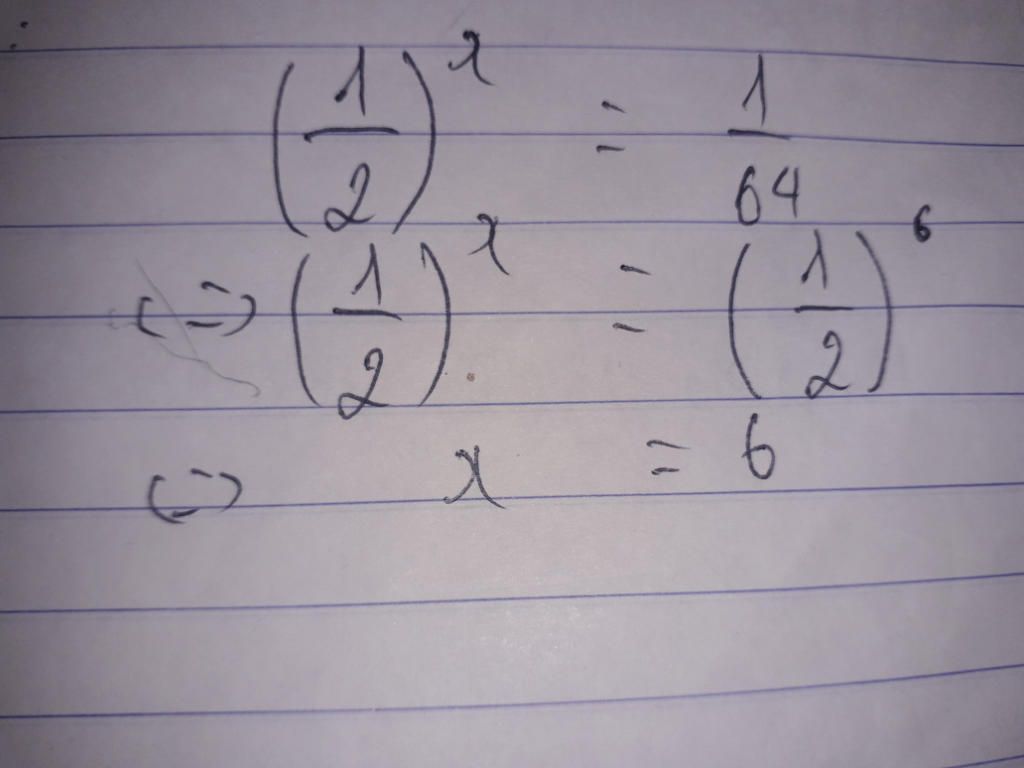 (1/2)^x = 1/64
(=) (1/2)^x = (1/2)^6
(=) x = 6